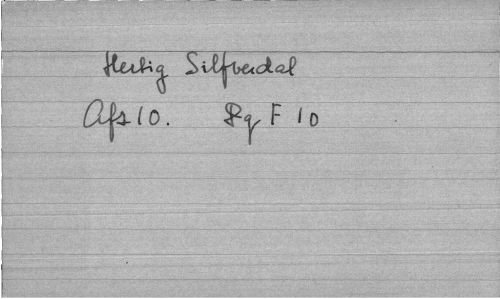 Hertig Silfverdal
Afs 10. Rg F 10